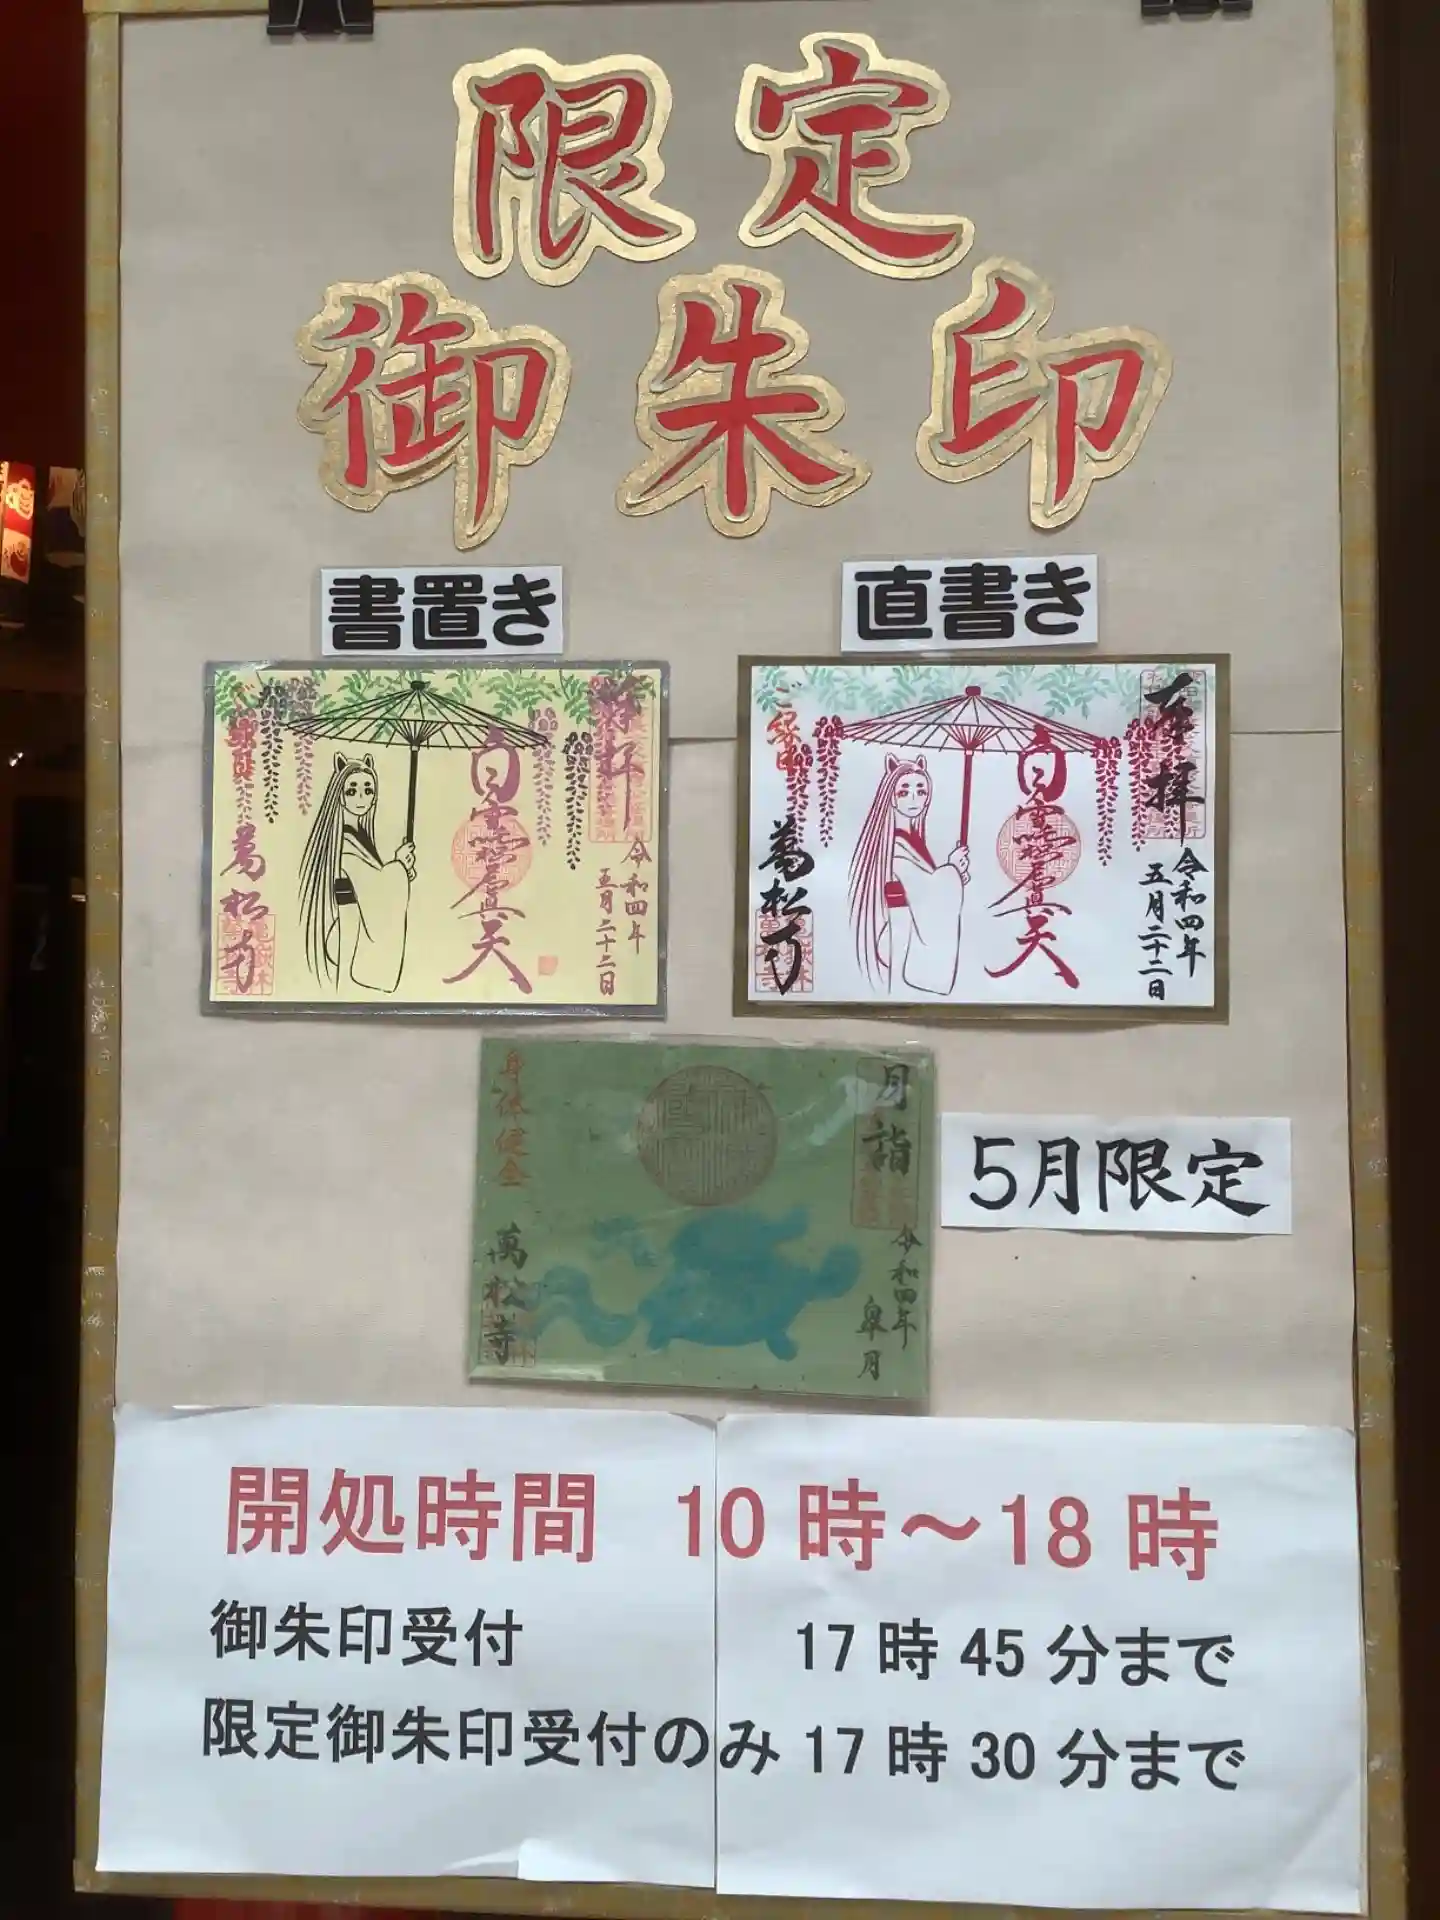 限定
御朱印
書置き
直書き
奉拝
令和四年
五月二十二日
白雪稲荷眞天
ご縁日
萬松寺
奉拝
令和四年
五月二十二日
ご縁日
萬松寺
月詣
令和四年
皐月
身体健全
萬松寺
5月限定
開処時間 10時～18時
御朱印受付 17時45分まで
限定御朱印受付のみ 17時30分まで